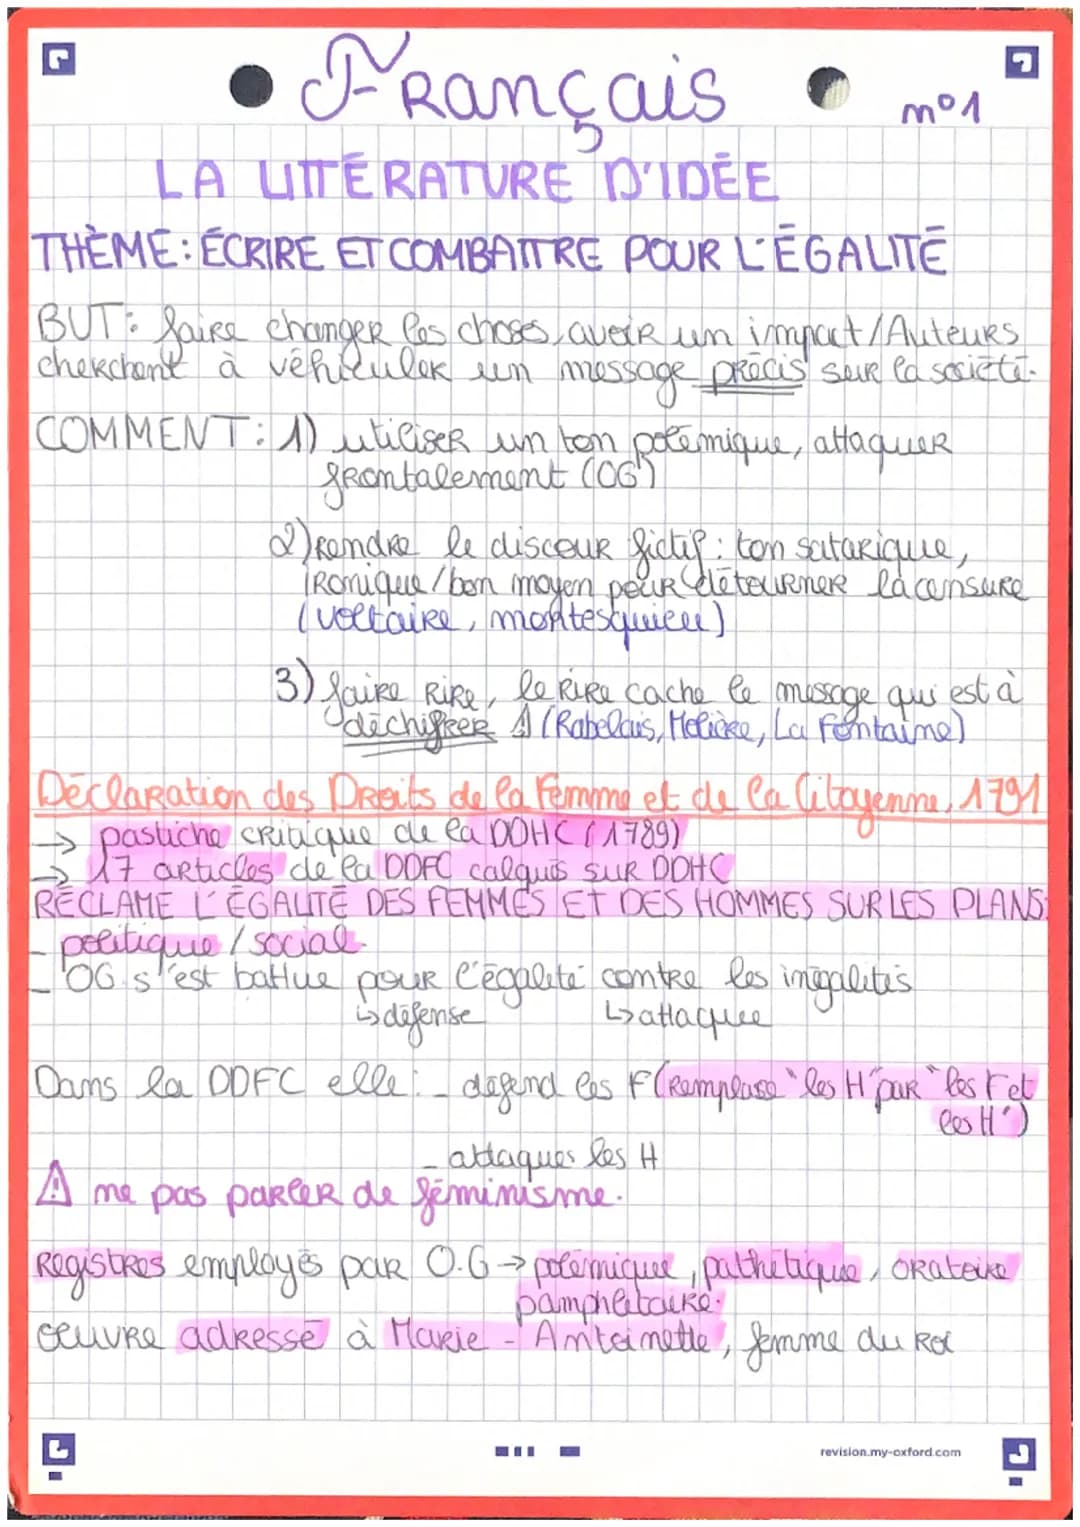 Français
n°1
LA LITTÉRATURE D'IDÉE
THÈME: ÉCRIRE ET COMBATTRE POUR L'ÉGALITÉ
BUT: faire changer les choses, avoir un impact/Auteurs
cherchent à véhiculer un message précis sur la société.
COMMENT: 1) utiliser un ton polémique, attaquer
frontalement (OG)
2) rendre le discour fictif: ton satarique,
ironique/bon moyen pour détourner la censure
(voltaire, montesquieu)
3) faire rire, le rire cache le message qui est à
déchiffrer (Rabelais, Molière, La Fontaine)
Déclaration des Droits de la Femme et de la Citoyenne, 1791
→ pastiche critique de la DDHC (1789)
→ 17 articles de la DDFC calqués sur DDHC
RÉCLAME L'ÉGALITÉ DES FEMMES ET DES HOMMES SUR LES PLANS:
- politique / social
- OG s'est battue pour l'égalité contre les inégalités
↳ défense ↳ attaque
Dans la DDFC elle: - défend les F (remplase "les H" par "les F et
les H")
- attaques les H
⚠ ne pas parler de féminisme.
Registres employés par O.G → polémique, pathétique, oratoire
pamphlétaire.
œuvre adressé à Marie-Antoinette, femme du Roi
revision.my-oxford.com